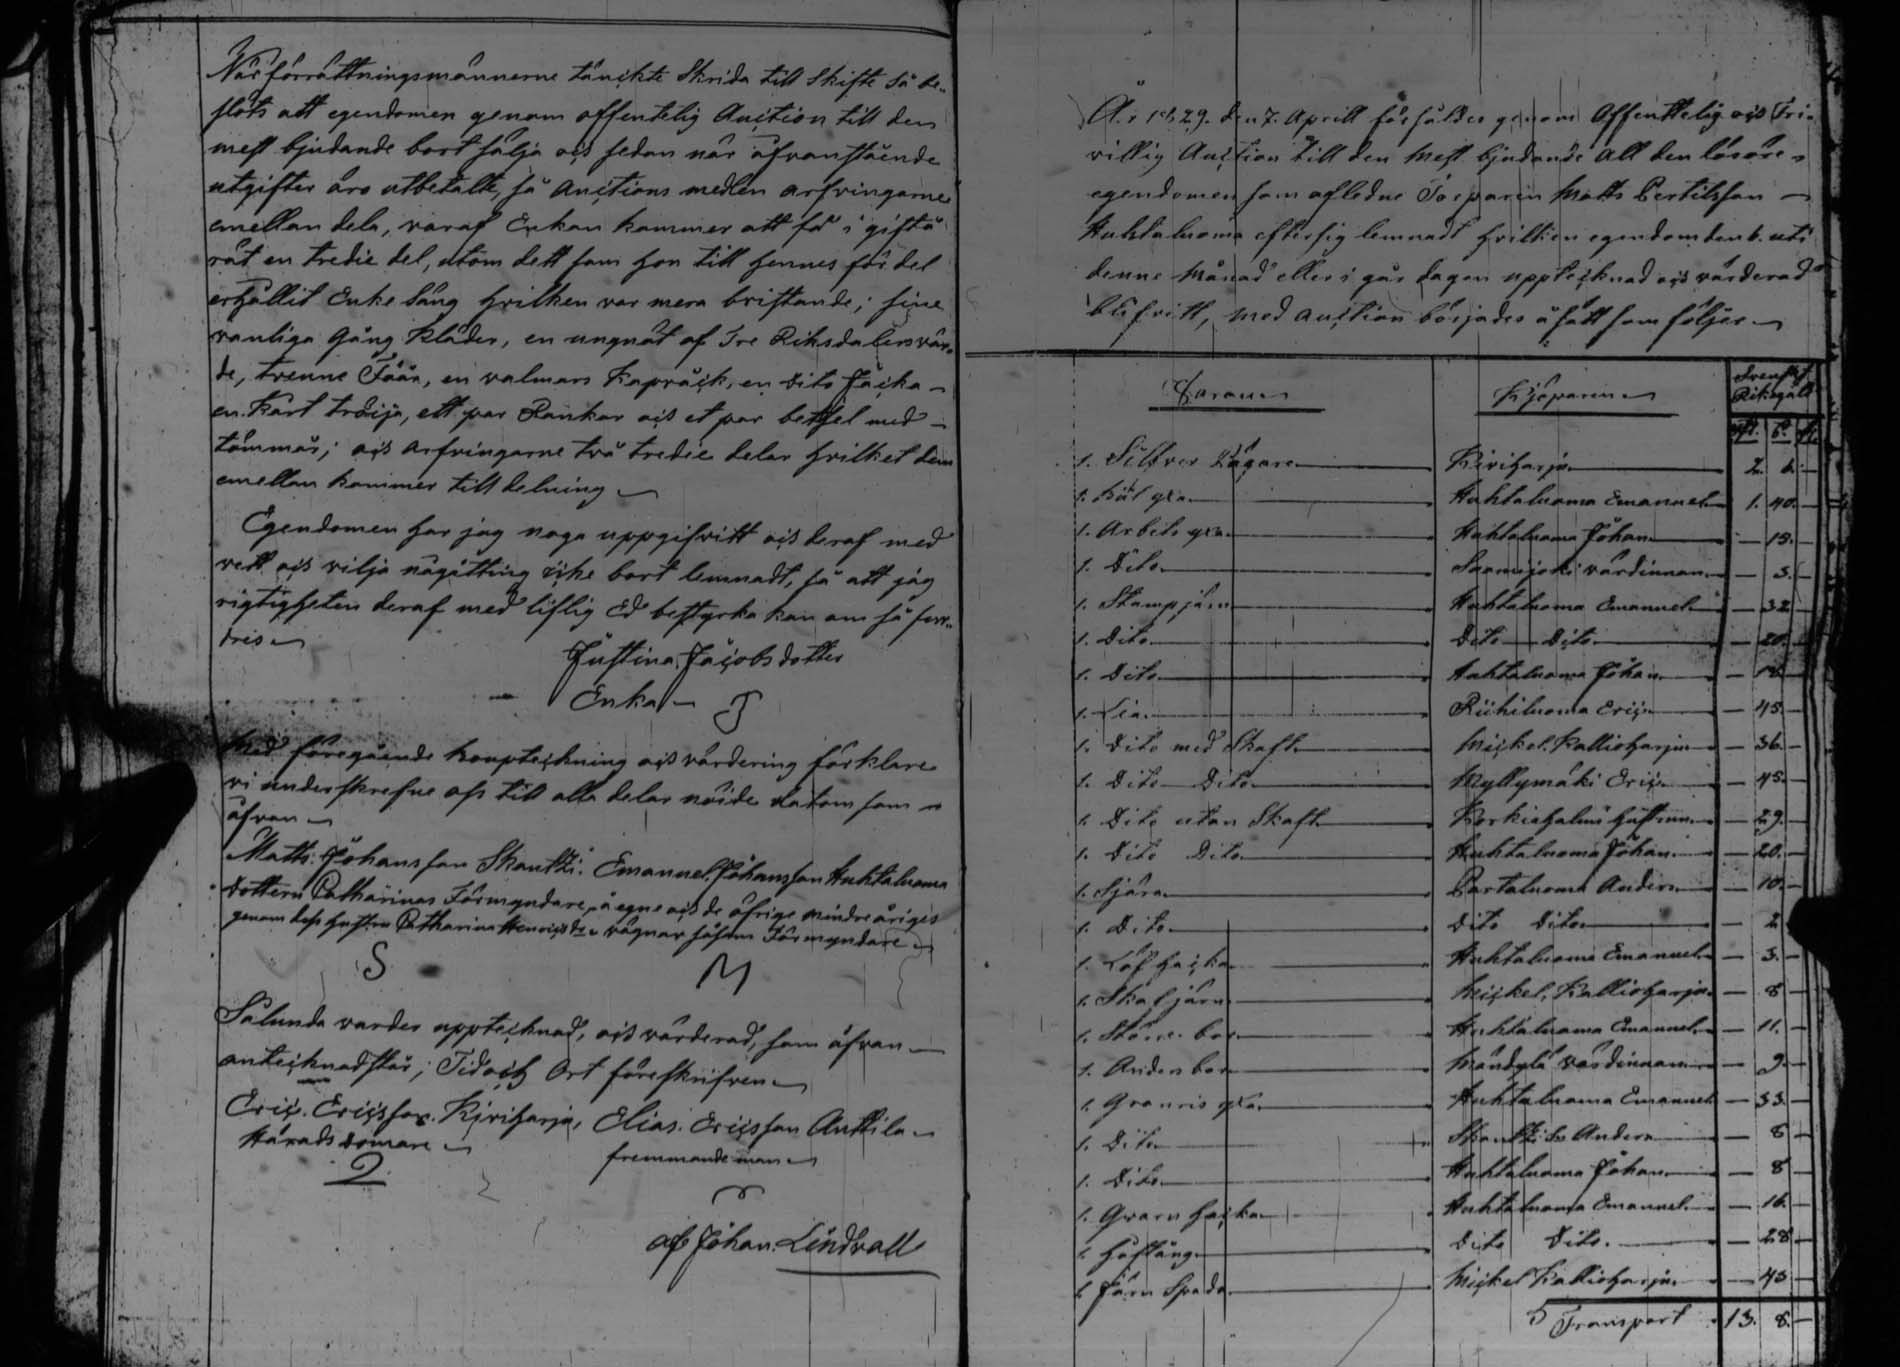 När förrättningsmännerne tänckte Skrida till Skifte så be-
slöts att egendomen genom offentelig Auction till den
mest bjudande bort sälja och sedan när åfvanstående
utgifter äro utbetalte, så Auctions medlen arfvingarne
emellan dela, varaf Enkan kommer att få i gifta
rät en tredie del, utom dett som hon till hennes för del
erhållit Enke Säng hvilken var mera bristande; sine
vanliga Gång Kläder, en ungnöt af Tre Riksdalers vär-
de, trenne Fåår, en valmars Kapråck, en Dito Jacka
en Kort tröija, ett par Rankor och et par bethsel med
tömmar; och Arfvingarne två tredie delar hvilket dem
emellan kommer till delning
Egendomen har jag noga uppgifvitt och deraf med
vett och vilja någotting icke bort lemnadt, så att jag
rigtigheten deraf med liflig Ed bestyrka kan om så for-
dris
Justina Jacobsdotter
Enka
Med föregående Boupteckning och värdering förklare
vi underskrefne oss till alla delar nöide datom som
åfvan
Matts Johansson Skantzi. Emanuel Johansson Huhtaluoma
Dottern Catharinas Förmyndare, å egne och de öfrige mindreåriges
genom dess hustru Catharina Henricsdr vägnar såsom Förmyndare
S M
Sålunda vardes upptecknad, och värderad, som åfvan
antecknadt står; Tid och Ort föreskrifven
Eric Ericsson Kiviharju, Elias Ericsson Anttila
Häradsdomare fremmande man
af Johan Lindvall
År 1829. den 7. Aprill försåldes genom Offenttelig och Fri-
villig Auction till den Mest bjudande All den lösöre
egendomen som afledne Torparen Matts Bertilsson
Huhtaluoma efter sig lemnadt hvilken egendom den 6. uti
denne Månad eller i går dagen upptecknad och värderad
blefvitt, med Auction börjades å sätt som följer
Svenskt
Varan Kjöparen Riksgäld
1. Silfver Bägare Kiviharju 2. 6.
1. Huhtaluoma Emanuel 1. 40.
1. Arbets Huhtaluoma Johan 15.
1. Dito Saarijoki värdinnan 3.
1. Stampjärn Huhtaluoma Emanuel 32
1. Dito Dito Dito 20.
1. Dito Huhtaluoma Johan 18.
1. Lia Riihiluoma Eric 45.
1. Dito med Skaft Mickel Kallioharju 36.
1. Dito Dito Myllymäki Eric 45.
1. Dito utan Skaft hustrun 29.
1. Dito Dito Huhtaluoma Johan 20.
1. Sjära Partaluoma Anders 10.
1. Dito Dito Dito 2
1. Löf hacka Huhtaluoma Emanuel 3.
1. Skaf järn Mickel Kallioharju 8
1. Större bor Huhtaluoma Emanuel 11.
1. Anden bor Mändylä värdinnan 9.
1. Huhtaluoma Emanuel 33.
1. Dito Skantzi Anders 8
1. Dito Huhtaluoma Johan 8
1. Qvarn hacka Huhtaluoma Emanuel 16.
1. Höftång Dito Dito. 28
1. Järn Spada Mickel Kallioharju 43
Transport 13. 8.